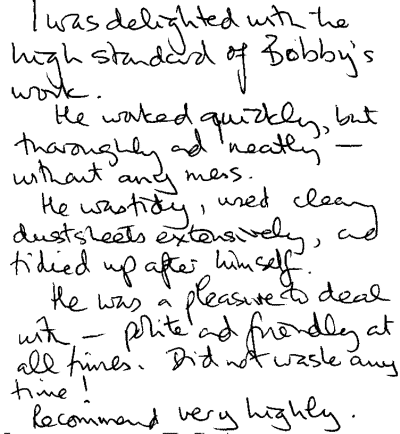 I was delighted with the
high standard of Bobby's
work.
He worked quickly, but
thoroughly and neatly —
without any mess.
He was tidy, used clean
dustsheets extensively, and
tidied up after himself.
He was a pleasure to deal
with — polite and friendly at
all times. Did not waste any
time!
Recommend very highly.